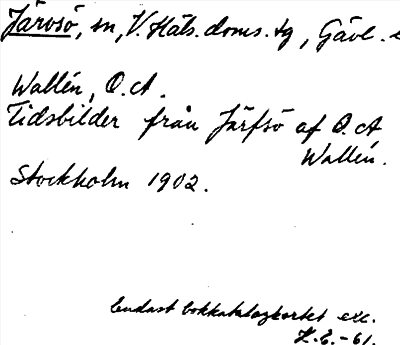 Järvsö, sn, V. Häls. doms. tg, Gävl.
Wallén, O. A.
Tidsbilder från Järfsö af O. A
Wallén.
Stockholm 1902.
Endast bokkatalogkortet exc.
H. E. -61.